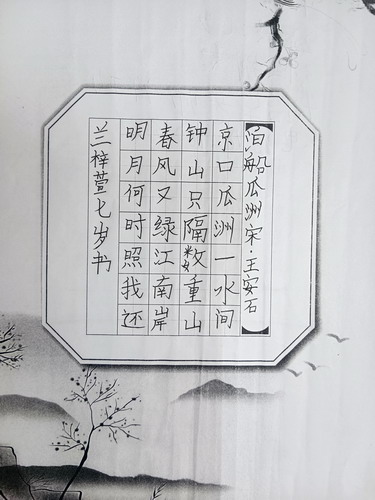 泊船瓜洲宋·王安石
京口瓜洲一水间
钟山只隔数重山
春风又绿江南岸
明月何时照我还
兰梓萱七岁书